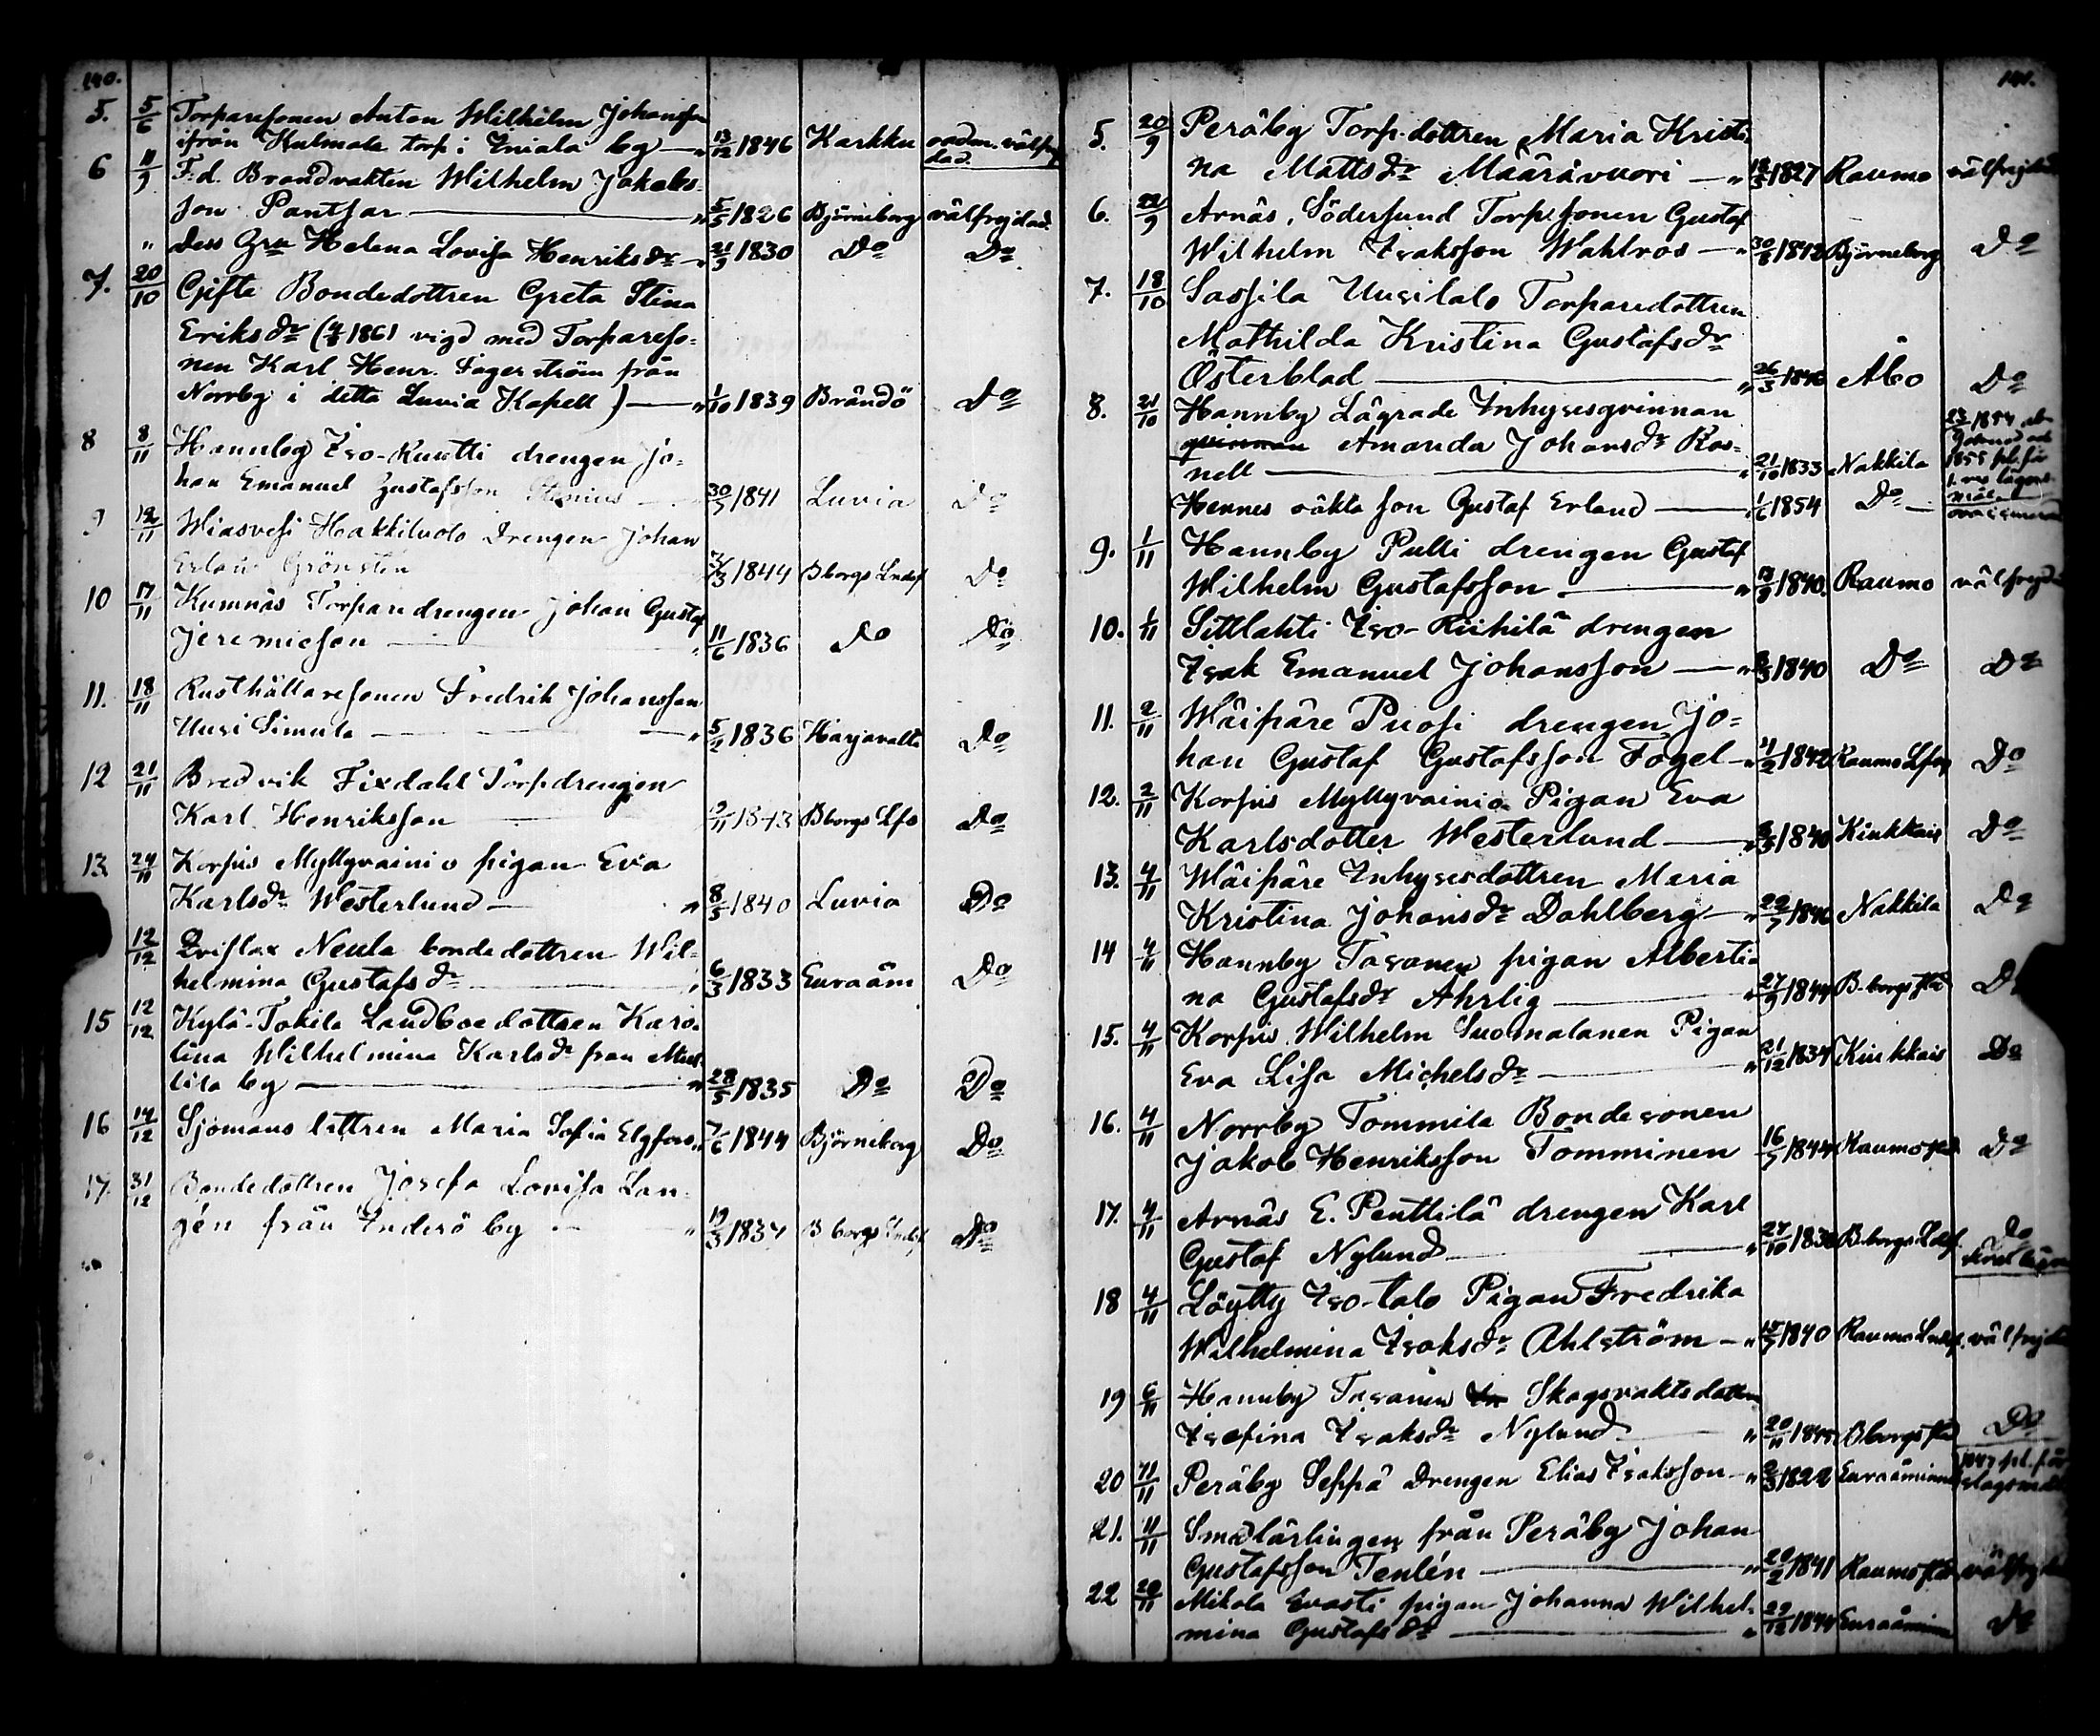 140.
5. 5/6 Torparesonen Anton Wilhelm Johansson
ifrån Kulmala torp i Iniala by — " 13/12 1846 Karkku vadm. välfrej
dad.
6 11/9 F.d. Brandvakten Wilhelm Jakobs-
son Pantsar — " 5/5 1826 Björneborg välfrejdad.
" dess Hru Helena Lovisa Henriksdr — " 21/9 1830 Do Do
7. 20/10 Gifta Bondedottren Greta Stina
Eriksdr (4/8 1861 vigd med Torpareso-
nen Karl Henr. Fagerström från
Norrby i detta Luvia Kapell) — " 1/10 1839 Brändö Do
8 8/11 Hannby Iso-Kuutti drengen Jo-
han Emanuel Gustafsson Stenius — 30/5 1841 Luvia Do
9 12/11 Wiasvesi Hakkiluoto Drengen Johan
Erland Grönsten 1844 Bborgs Lndsf Do
10 17/11 Kumnäs Torparedrengen Johan Gustaf
Jeremiesson — " 11/6 1836 Do Do
11. 18/11 Rusthållaresonen Fredrik Johansson
Uusi Simula — " 5/2 1836 Harjavalta Do
12 21/11 Bredvik Fixdahl Torpdrengen
Karl Henriksson — 9/11 1843 Bborgs Lfs Do
13. 24/11 Korpus Myllyvainio pigan Eva
Karlsdr Westerlund — " 8/5 1840 Luvia Do
12/12 Qvistlax Neula bondedottren Wil-
helmina Gustafsdr — " 6/3 1833 Euraåm Do
15 12/12 Kylä-Tokila Landboedottren Karo-
lina Wilhelmina Karlsdr från
lila by — " 28/5 1835 Do Do
16 14/12 Sjömansdottren Maria Sofia Elgfors " 7/6 1844 Björneborg Do
17. 31/12 Bondedottren Josefa Lovisa Lan-
gén från Inderö by — " 19/3 1837 Bborgs Lndsf Do
141.
5. 20/9 Peräby Torp.dottren Maria Kristi-
na Mattsdr Määrävuori — " 1827 Raumo välfrejdad
6. 22/9 Arnäs, Södersund Torpsonen Gustaf
Wilhelm Isaksson Wahlros — " 30/6 1842 Björneborg Do
7. 18/10 Sassila Uusitalo Torparedottren
Mathilda Kristina Gustafsdr
Österblad — " 26/3 1846 Åbo Do
8. 21/10 Hannby Lägrade Inhysesqvinnan
qvinnan Amanda Johansdr Ros-
nell — " 21/10 1833 Nakkila
Hennes oäkta son Gustaf Erland — " 1/6 1854 Do
9. 1/11 Hannby Pulli drengen Gustaf
Wilhelm Gustafsson — " 1840. Raumo välfrejd
10. 1/11 Sittlahti Iso-Riihilä drengen
Isak Emanuel Johansson — " 1840 Do Do
11. 2/11 Wäipäre Puosi drengen Jo-
han Gustaf Gustafsson Fogel — " 11/2 1842 Raumo Lfsg Do
12. 2/11 Korpus Myllyvainio Pigan Eva
Karlsdotter Westerlund — " 8/5 1840 Kiukkais Do
13. 4/11 Wäipäre Inhysesdottren Maria
Kristina Johansdr Dahlberg — " 22/7 1846 Nakkila Do
14 4/11 Hannby Tasanen pigan Alberti-
na Gustafsdr Ahrlig — " 27/9 1844 B-borgs std
15. 4/11 Korpus Wilhelm Suomalanen Pigan
Eva Lisa Michelsdr — " 21/12 1834 Kiukkais Do
16. 4/11 Norrby Tommila Bondesonen
Jakob Henriksson Tomminen 16/7 1844 Raumo Do
17. 4/11 Arnäs E. Penttilä drengen Karl
Gustaf Nylund — " 27/10 Bborgs Ldsf. Do
18 4/11 Löytty Iso-talo Pigan Fredrika
Wilhelmina Isaksdr Ahlström — " 1840 Raumo Lndsf. välfrejd
19 6/11 Hannby Tasanen Skogsvaktsdottren
Isefina Isaksdr Nylund " 20/11 Bborgs std Do
20 11/11 Peräby Seppä Drengen Elias Isaksson — " 1822 Euraåminne 1847 pl. för
slagsmål
21. 11/11 Smedlärlingen från Peräby Johan
Gustafsson Tenlén — " 29/2 1841 Raumo välfrejdad
22 20/11 Mikola Evasti pigan Johanna Wilhel-
mina Gustafsdr — " 29/12 1844 Euraåminne Do